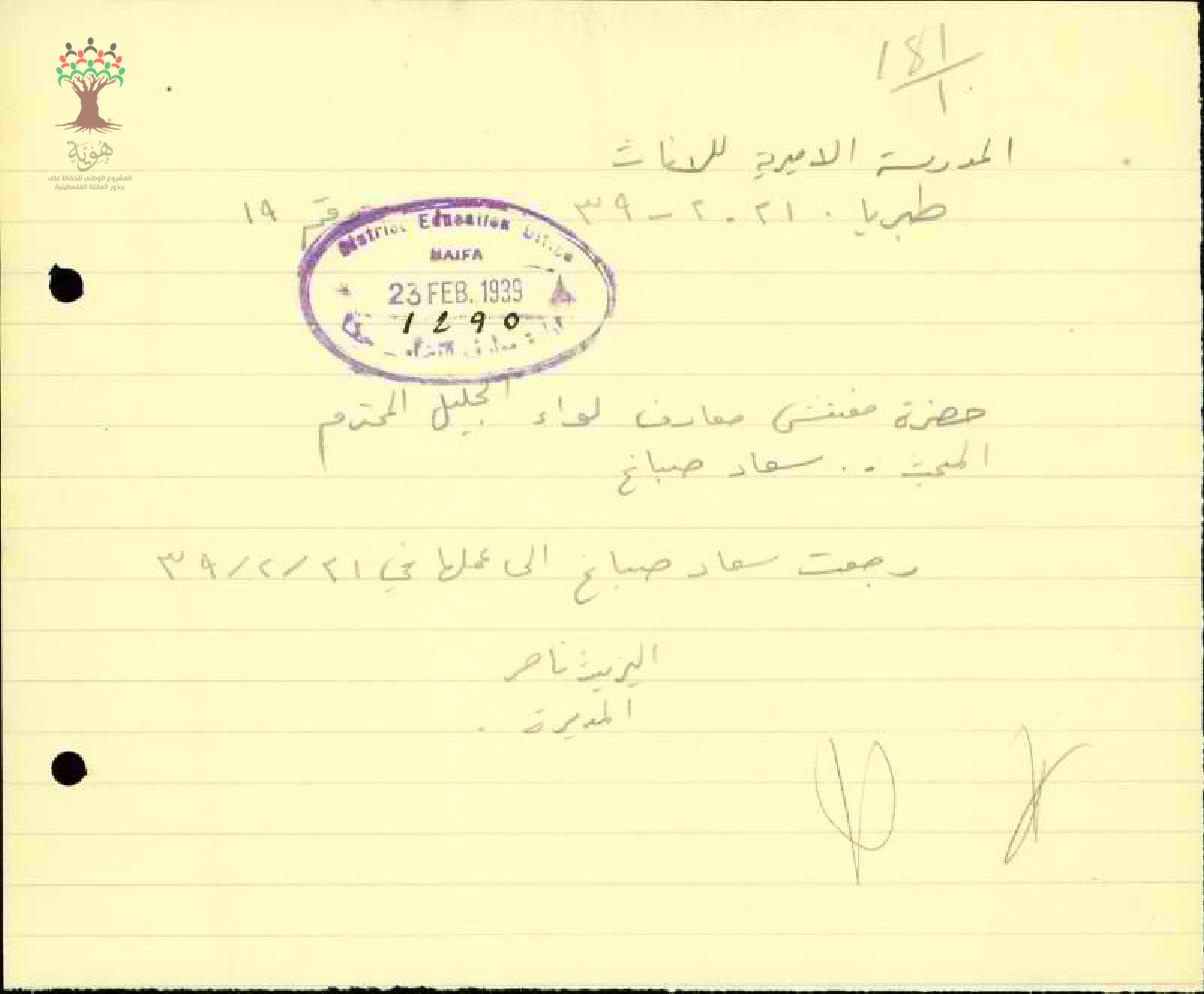 181/1
هوية
المشروع الوطني للحفاظ على
جذور العائلة الفلسطينية
المدرسة الاميرية للاناث
طبريا . ٢١ - ٢ - ٣٩ رقم ١٩
District Education Office
HAIFA
23 FEB. 1939
1290
حضرة مفتش معارف لواء الجليل المحترم
المبحث .. سعاد صباغ
رجعت سعاد صباغ الى عملها في ٢١/٢/٣٩
ناصر
المديرة .